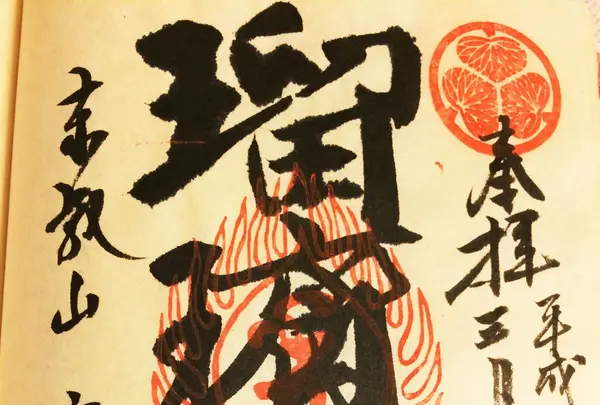 奉拝
平成
三月
瑠璃
東叡山